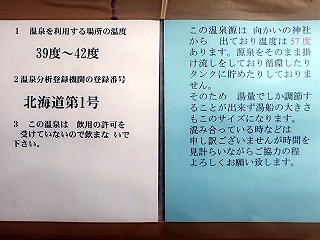 1 温泉を利用する場所の温度
39度〜42度
2 温泉分析登録機関の登録番号
北海道第1号
3 この温泉は 飲用の許可を
受けていないので飲まな いで
下さい。
この温泉源は 向かいの神社
から 出ており温度は57度
あります。源泉をそのまま掛
け流しをしており循環したり
タンクに貯めたりしておりま
せん。
そのため 湯量でしか調節す
ることが出来ず湯船の大きさ
もこのサイズになります。
混み合っている時などは
申し訳ございませんが時間を
見計らいながらご協力の程
よろしくお願い致します。